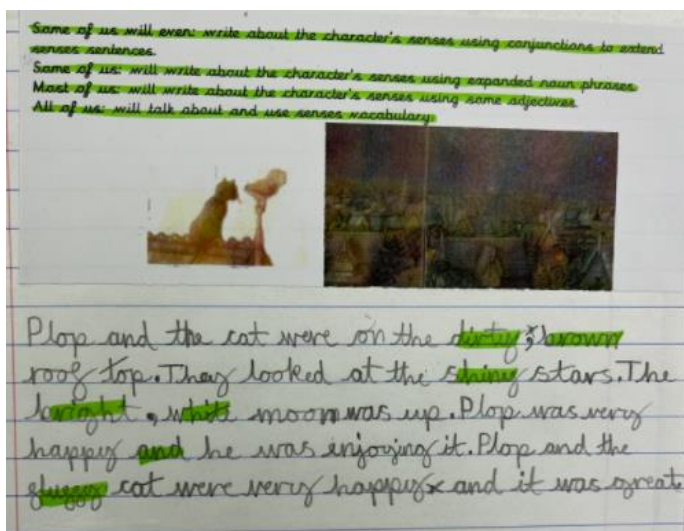 Some of us will even: write about the character's senses using conjunctions to extend
senses sentences.
Some of us: will write about the character's senses using expanded noun phrases
Most of us: will write about the character's senses using some adjectives
All of us: will talk about and use senses vocabulary.
Plop and the cat were on the dirty, brown
roof top. They looked at the shiny stars. The
bright, white moon was up. Plop was very
happy and he was enjoying it. Plop and the
fluggy cat were very happy and it was great.